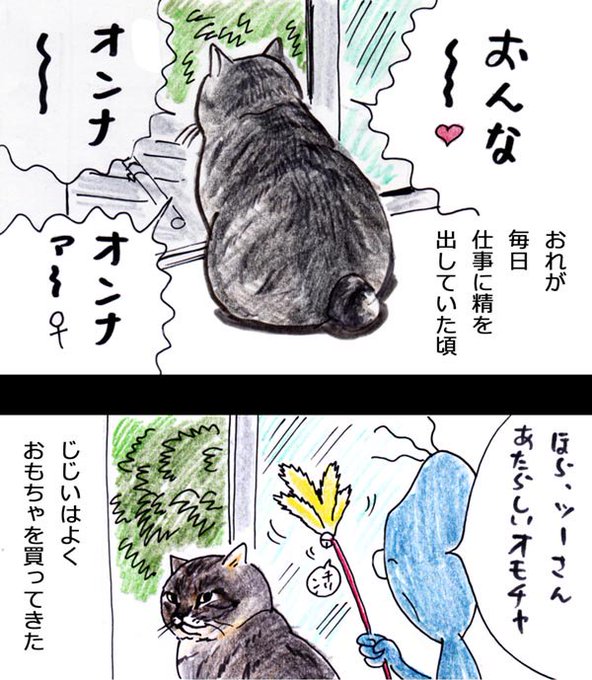 おんな
〜〜♥
オンナ
〜〜
オンナ
ァ〜〜♀
おれが
毎日
仕事に精を
出していた頃
ほら、ツーさん
あたらしいオモチャ
じじいはよく
おもちゃを買ってきた